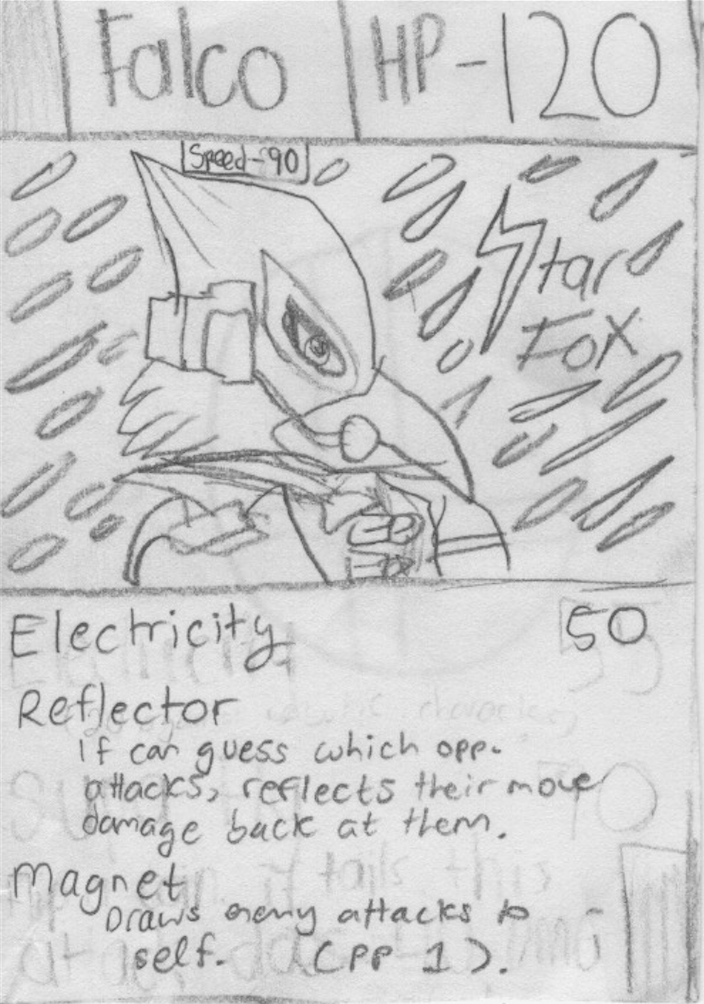 Falco
HP-120
Speed-90
Star
Fox
Electricity 50
Reflector
If can guess which opp.
attacks, reflects their move
damage back at them.
Magnet
Draws enemy attacks to
self. (PP 1).